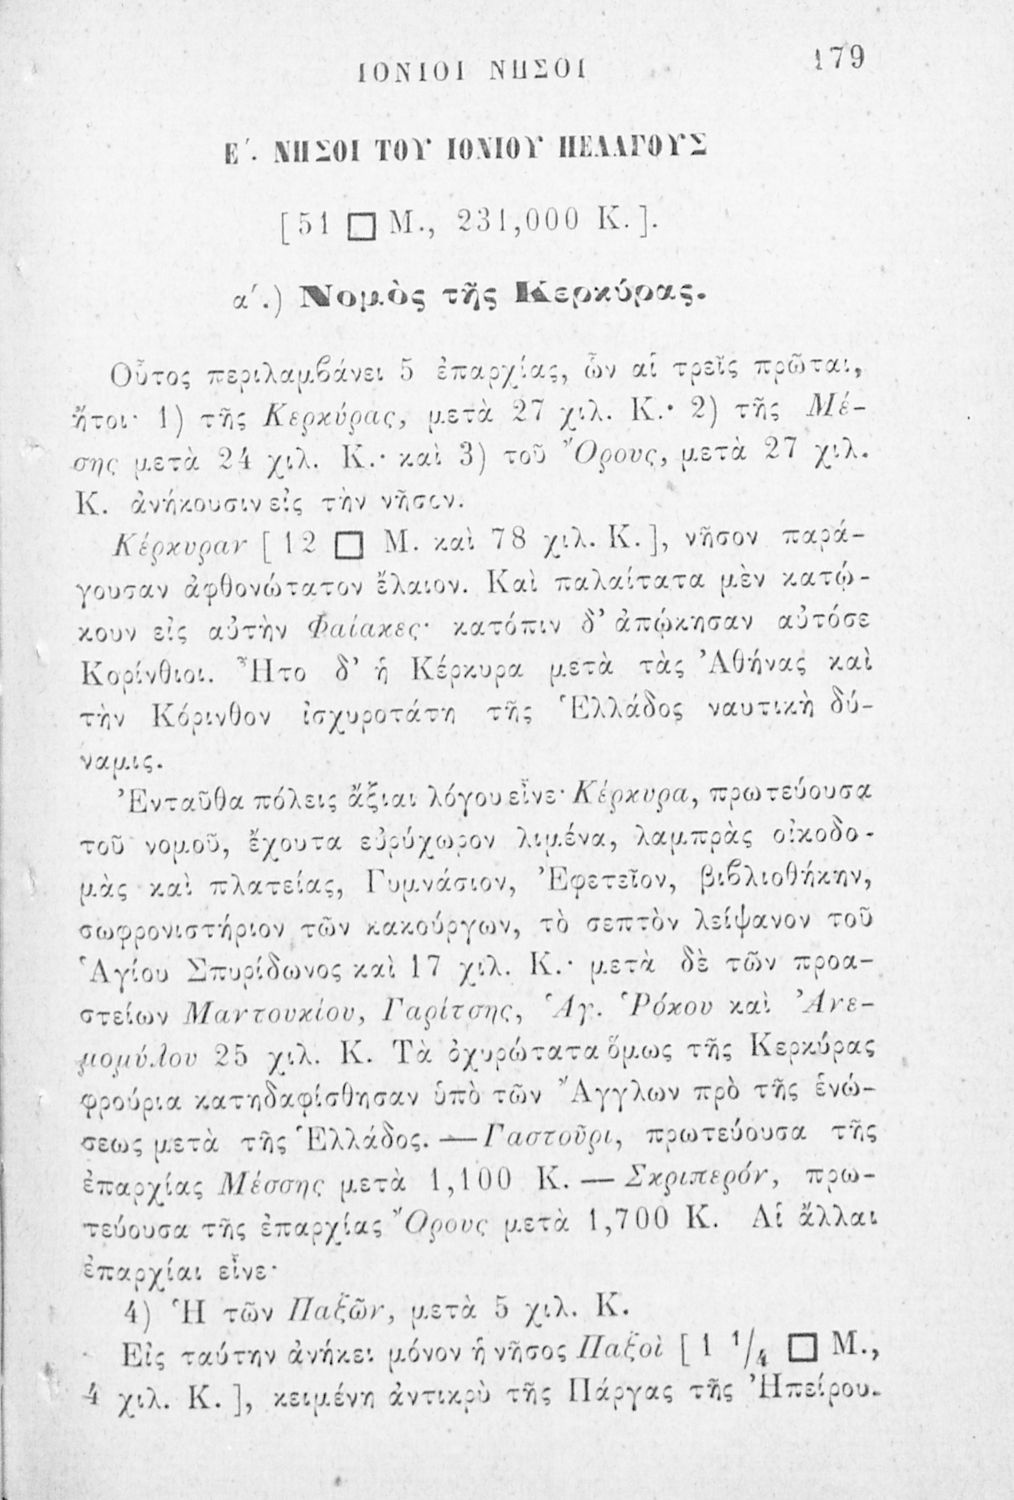 ΙΟΝΙΟΙ ΝΗΣΟΙ 179
Ε΄. ΝΗΣΟΙ ΤΟΥ ΙΟΝΙΟΥ ΠΕΛΑΓΟΥΣ
[51 □ Μ., 231,000 Κ.].
α΄.) Νομὸς τῆς Κερκύρας.
Οὗτος περιλαμβάνει 5 ἐπαρχίας, ὧν αἱ τρεῖς πρῶται,
ἤτοι· 1) τῆς Κερκύρας, μετὰ 27 χιλ. Κ.· 2) τῆς Μέ-
σης μετὰ 24 χιλ. Κ.· καὶ 3) τοῦ Ὄρους, μετὰ 27 χιλ.
Κ. ἀνήκουσιν εἰς τὴν νῆσον.
Κέρκυραν [12 □ Μ. καὶ 78 χιλ. Κ.], νῆσον παρά-
γουσαν ἀφθονώτατον ἔλαιον. Καὶ παλαίτατα μὲν κατῴ-
κουν εἰς αὐτὴν Φαίακες· κατόπιν δ' ἀπῴκησαν αὐτόσε
Κορίνθιοι. Ἦτο δ' ἡ Κέρκυρα μετὰ τὰς Ἀθήνας καὶ
τὴν Κόρινθον ἰσχυροτάτη τῆς Ἑλλάδος ναυτικὴ δύ-
ναμις.
Ἐνταῦθα πόλεις ἄξιαι λόγου εἶνε· Κέρκυρα, πρωτεύουσα
τοῦ νομοῦ, ἔχουτα εὐρύχωρον λιμένα, λαμπρὰς οἰκοδο-
μὰς καὶ πλατείας, Γυμνάσιον, Ἐφετεῖον, βιβλιοθήκην,
σωφρονιστήριον τῶν κακούργων, τὸ σεπτὸν λείψανον τοῦ
Ἁγίου Σπυρίδωνος καὶ 17 χιλ. Κ.· μετὰ δὲ τῶν προα-
στείων Μαντουκίου, Γαρίτσης, Ἁγ. Ῥόκου καὶ Ἀνε-
μομύλου 25 χιλ. Κ. Τὰ ὀχυρώτατα ὅμως τῆς Κερκύρας
φρούρια κατηδαφίσθησαν ὑπὸ τῶν Ἄγγλων πρὸ τῆς ἑνώ-
σεως μετὰ τῆς Ἑλλάδος. — Γαστοῦρι, πρωτεύουσα τῆς
ἐπαρχίας Μέσσης μετὰ 1,100 Κ. — Σκριπερόν, πρω-
τεύουσα τῆς ἐπαρχίας Ὄρους μετὰ 1,700 Κ. Αἱ ἄλλαι
ἐπαρχίαι εἶνε·
4) Ἡ τῶν Παξῶν, μετὰ 5 χιλ. Κ.
Εἰς ταύτην ἀνήκει μόνον ἡ νῆσος Παξοὶ [1 1/4 □ Μ.,
4 χιλ. Κ.], κειμένη ἀντικρὺ τῆς Πάργας τῆς Ἠπείρου.